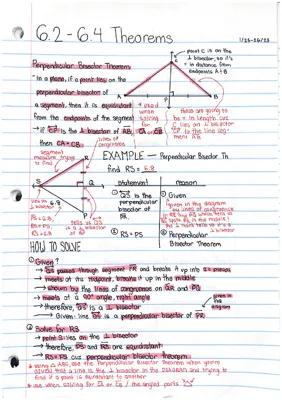 6.2 - 6.4 Theorems
1/25-26/23
point C is on the
⊥ bisector, so it's
= in distance from
endpoints A + B
Perpendicular Bisector Theorem
In a plane, if a point lies on the
perpendicular bisector of
a segment, then it is equidistant
from the endpoints of the segment
→ if CP is the ⊥ bisector of AB,
then CA = CB
C
A
P
B
used
when
solving
for
CA or
CB
these are going to
be = in length cus
C lies on ⊥ bisector
CP to the line seg-
ment AB
Segment
measure trying
to find
lines of
congruence
EXAMPLE - Perpendicular Bisector Th.
find RS = 6.8
R
S
Q
P
6.8
statement
reason
① QS is the
perpendicular
bisector of
PR
① Given
② RS = PS
② Perpendicular
Bisector Theorem
HOW TO SOLVE
① Given?
→ QS passes through segment PR and breaks it up into 2 = pieces
→ meets at its midpoint, breaks it up in the middle
→ shown by the lines of congruence on QR and PQ
→ meets at a 90° angle, right angle
→ therefore, QS is a ⊥ bisector
→ Given: line QS is a perpendicular bisector of PR
given in
the
diagram
② Solve for RS
→ point S lies on the ⊥ bisector
→ therefore, PS and RS are equidistant
→ RS = PS cus perpendicular bisector theorem